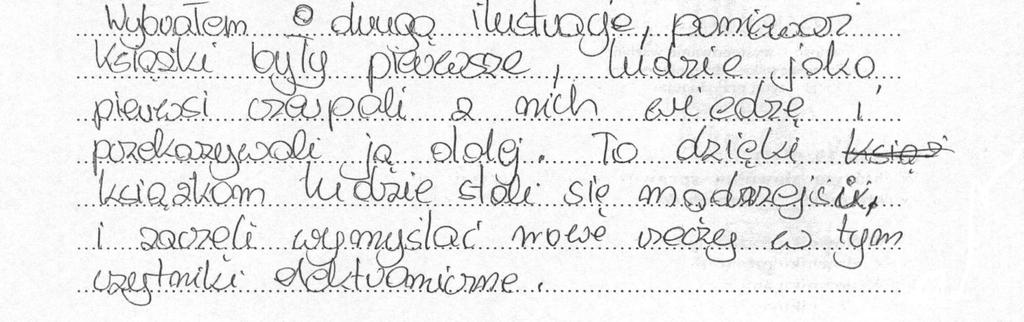 Wybrałem drugą ilustrację, ponieważ
książki były pierwsze, ludzie jako
pierwsi czerpali z nich wiedzę i
przekazywali ją dalej. To dzięki książ
książkom ludzie stali się mądrzejsi,
i zaczęli wymyślać nowe rzeczy w tym
czytniki elektroniczne.